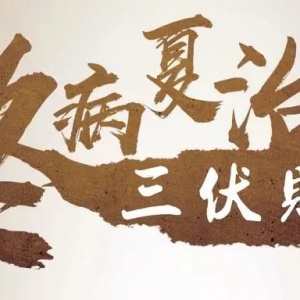 冬病夏治
三伏